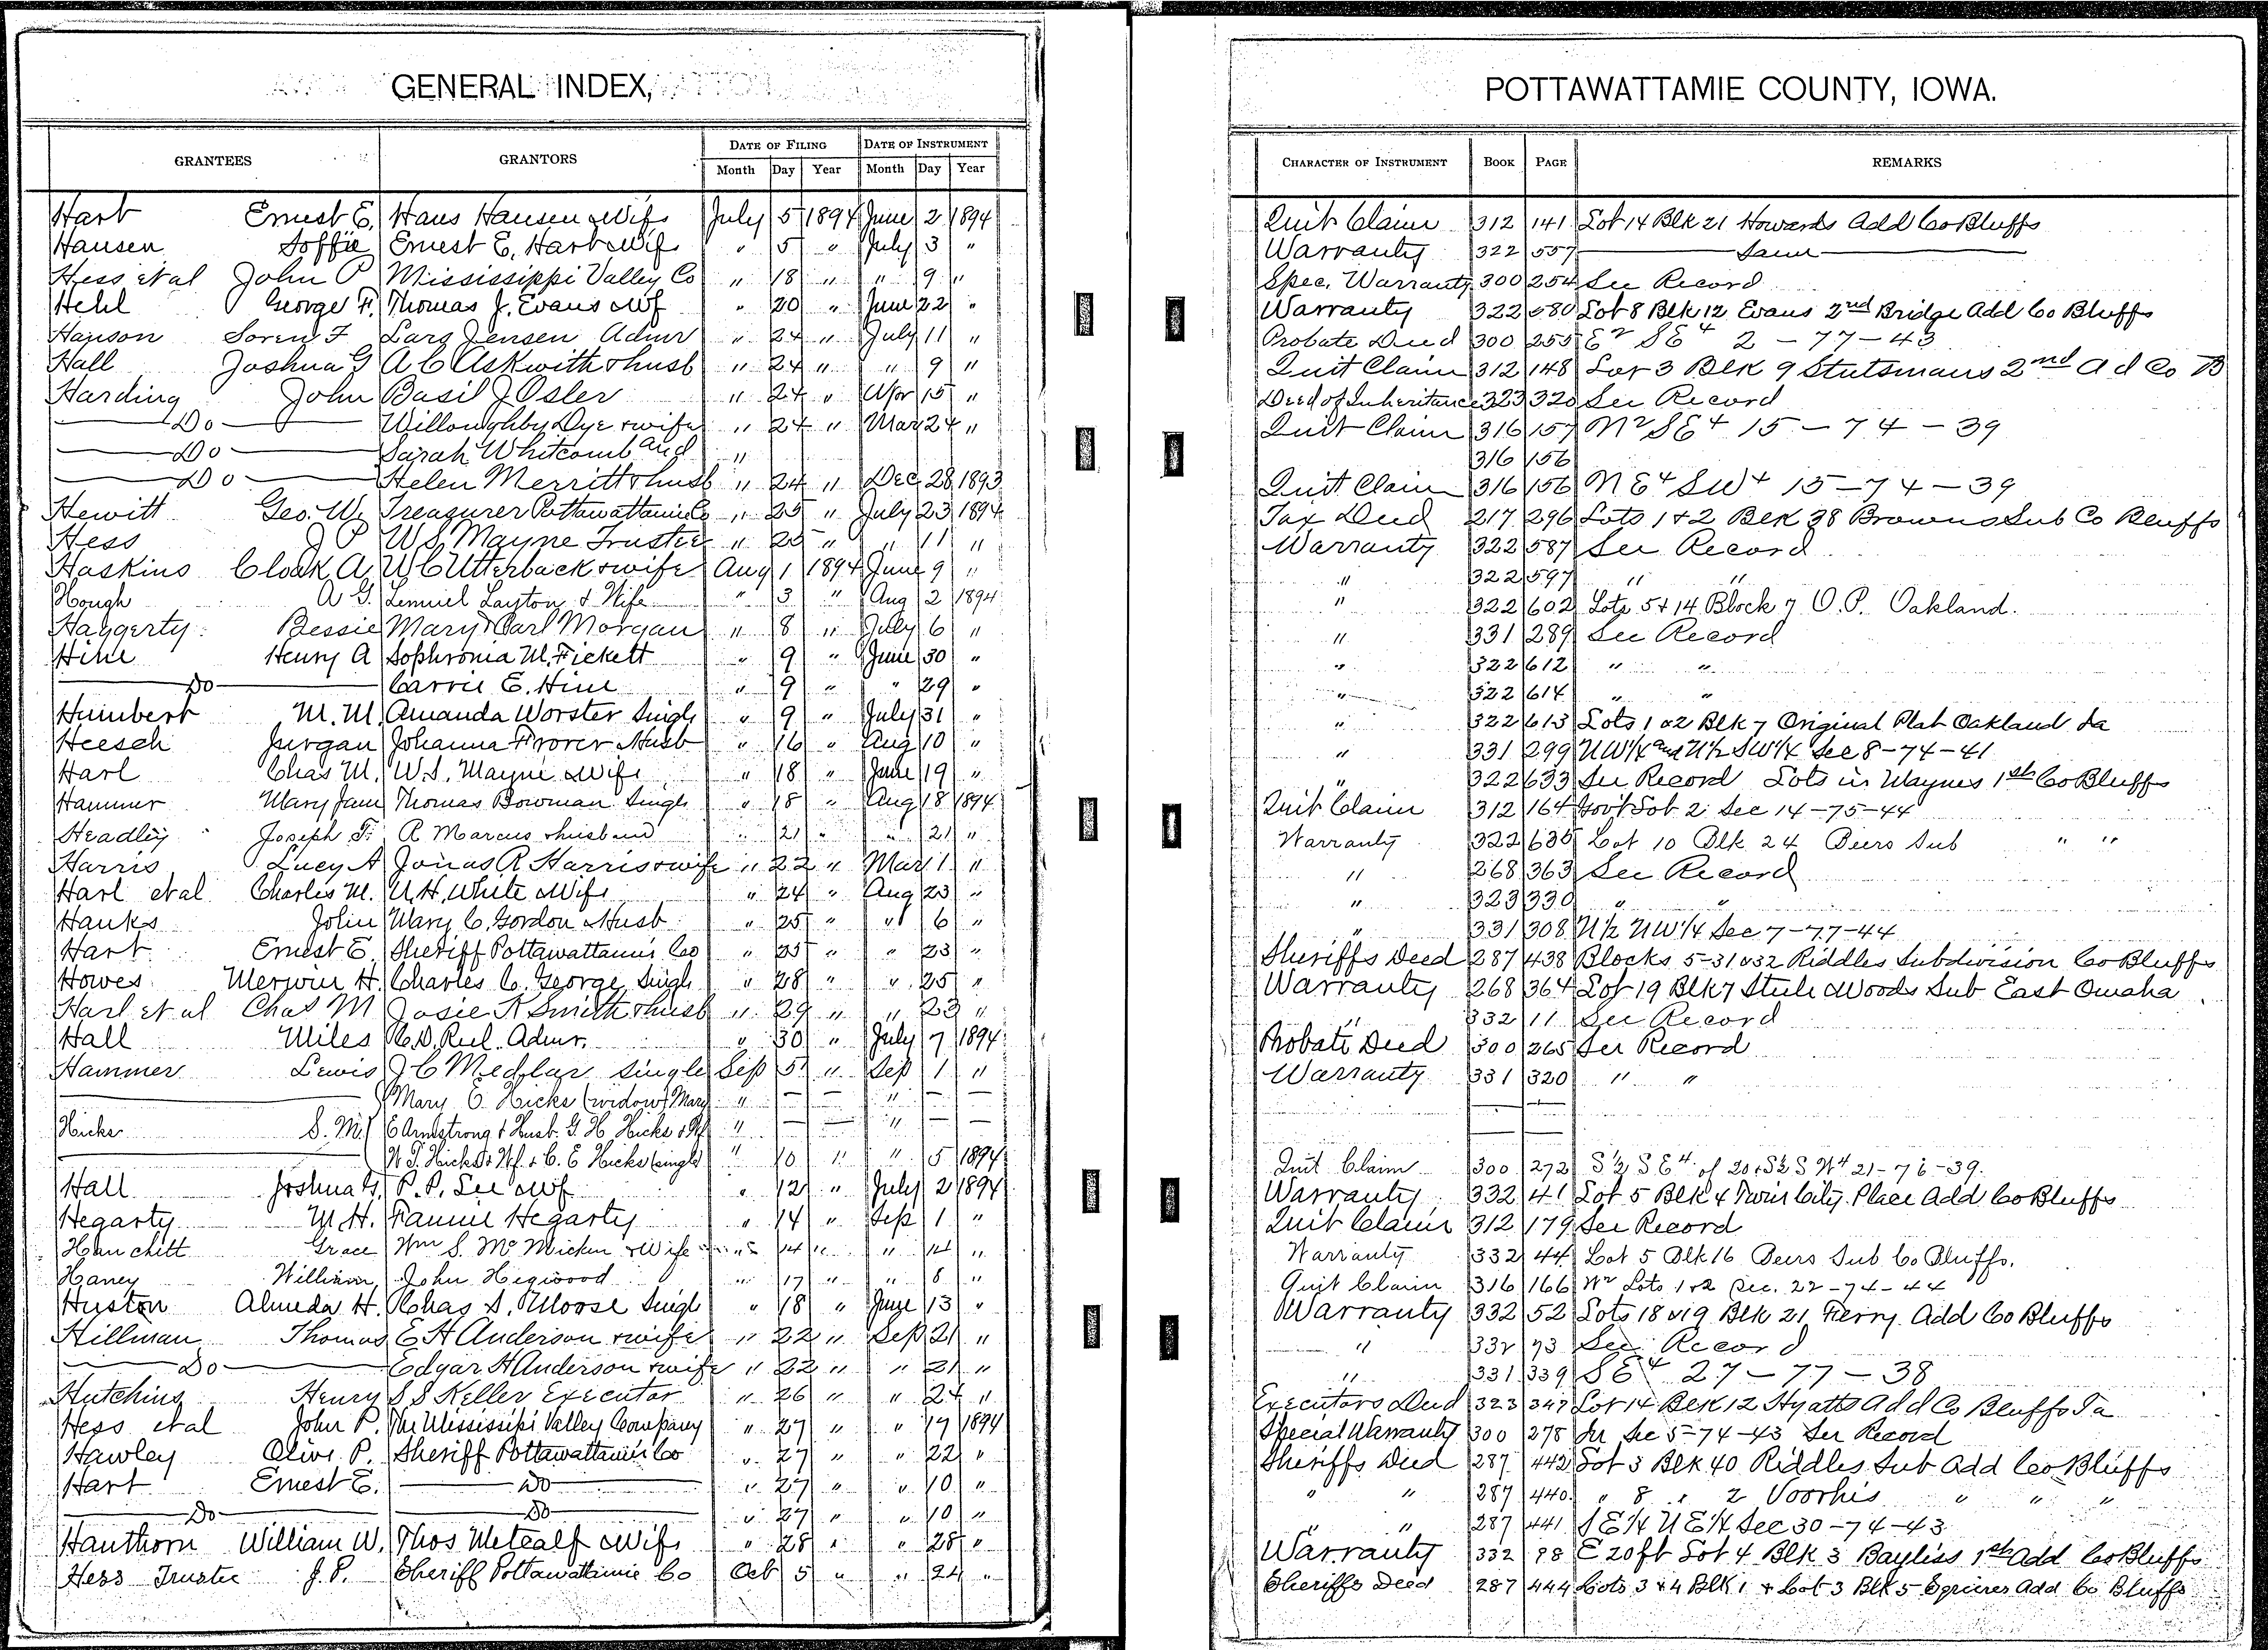 GENERAL INDEX,
GRANTEES GRANTORS DATE OF FILING DATE OF INSTRUMENT
Month Day Year Month Day Year
Hart Ernest E. Hans Hansen & Wife July 5 1894 June 2 1894
Hansen Soffie Ernest E. Hart & Wife " 5 " July 3 "
Hess et al John P Mississippi Valley Co " 18 " " 9 "
Hehl George F. Thomas J. Evans & Wf " 20 " June 22 "
Hanson Soren F Lars Jensen Admr " 24 " July 11 "
Hall Joshua G A C Askwith & husb " 24 " " 9 "
Harding John Basil J Osler " 24 " Apr 15 "
Do Willoughby Dye & wife " 24 " Mar 24 "
Do Sarah Whitcomb and "
Do Helen Merritt & husb " 24 " Dec 28 1893
Hewitt Geo. W. Treasurer Pottawattamie Co " 25 " July 23 1894
Hess J P W S Mayne Trustee " 25 " " 11 "
Haskins Cloak A. W C Utterback & wife Aug 1 1894 June 9 "
Hough A G. Lemuel Layton & Wife " 3 " Aug 2 1894
Haggerty Bessie Mary & Carl Morgan " 8 " July 6 "
Hine Henry A Sophronia M. Fickett " 9 " June 30 "
Do Carrie E. Hine " 9 " " 29 "
Humbert M. M. Amanda Worster Single " 9 " July 31 "
Heesch Jurgan Johanna Frorer & Husb " 16 " Aug 10 "
Harl Chas M. W. S. Mayne & Wife " 18 " June 19 "
Hammer Mary Jane Thomas Bowman Single " 18 " Aug 18 1894
Headley Joseph F. R Marcus & husband " 21 " " 21 "
Harris Lucy A Jonas R Harris & wife " 22 " Mar 1 "
Harl et al Charles M. N. H. White & Wife " 24 " Aug 23 "
Hanks John Mary C. Gordon & Husb " 25 " " 6 "
Hart Ernest E. Sheriff Pottawattamie Co " 25 " " 23 "
Howes Merwin H. Charles C. George Single " 28 " " 25 "
Harl et al Chas M Josie K Smith & husb " 29 " " 23 "
Hall Miles C. D. Reel Admr. " 30 " July 7 1894
Hammer Lewis J C Medlar single Sep 5 " Sep 1 "
Mary C. Hicks (widow) Mary " — — " — —
Hicks S. M. E Armstrong & Husb. G. H. Hicks & Wf " — — " — —
W. T. Hicks & Wf. & C. E Hicks (single) " 10 " " 5 1894
Hall Joshua G. P. P. Lee & Wf " 12 " July 2 1894
Hegarty M. H. Fannie Hegarty " 14 " Sep 1 "
Hanchett Grace Wm S. McMicken & Wife " 14 " " 14 "
Haney William John Hegwood " 17 " " 8 "
Huston Almeda H. Chas S. Moose Single " 18 " June 13 "
Hillman Thomas E H Anderson & wife " 22 " Sep 21 "
Do Edgar H Anderson & wife " 22 " " 21 "
Hutchins Henry S S Keller Executor " 26 " " 24 "
Hess et al John P. The Mississippi Valley Company " 27 " " 17 1894
Hawley Olive P. Sheriff Pottawattamie Co " 27 " " 22 "
Hart Ernest E. Do " 27 " " 10 "
Do Do " 27 " " 10 "
Hauthorn William W. Thos Metcalf & Wife " 28 " " 28 "
Hess Trustee J. P. Sheriff Pottawattamie Co Oct 5 " " 24 "
POTTAWATTAMIE COUNTY, IOWA.
CHARACTER OF INSTRUMENT BOOK PAGE REMARKS
Quit Claim 312 141 Lot 14 Blk 21 Howards Add Co Bluffs
Warranty 322 557 Same
Spec. Warranty 300 254 See Record
Warranty 322 580 Lot 8 Blk 12 Evans 2nd Bridge Add Co Bluffs
Probate Deed 300 255 E2 SE4 2 - 77 - 43
Quit Claim 312 148 Lot 3 Blk 9 Stutsmans 2nd Ad Co B
Deed of Inheritance 323 320 See Record
Quit Claim 316 157 N2 SE4 15 - 74 - 39
316 156
Quit Claim 316 156 NE4 SW4 15 - 74 - 39
Tax Deed 217 296 Lots 1 & 2 Blk 38 Browns Sub Co Bluffs
Warranty 322 587 See Record
" 322 597 " "
" 322 602 Lots 5 & 14 Block 7 O. P. Oakland.
" 331 289 See Record
" 322 612 " "
" 322 614 " "
" 322 613 Lots 1 & 2 Blk 7 Original Plat Oakland Ia
" 331 299 NW1/4 and N1/2 SW1/4 Sec 8-74-41
" 322 633 See Record Lots in Maynes 1st Co Bluffs
Quit Claim 312 164 Govt Lot 2 Sec 14-75-44
Warranty 322 635 Lot 10 Blk 24 Beers Sub " "
" 268 363 See Record
" 323 330 " "
" 331 308 N1/2 NW1/4 Sec 7-77-44
Sheriffs Deed 287 438 Blocks 5-31 & 32 Riddles Subdivision Co Bluffs
Warranty 268 364 Lot 19 Blk 7 Steele & Woods Sub East Omaha
" 332 11 See Record
Probate Deed 300 265 See Record
Warranty 331 320 " "
Quit Claim 300 272 S1/2 SE4 of 20 & S1/2 SW4 21-76-39.
Warranty 332 41 Lot 5 Blk 4 Twin City Place Add Co Bluffs
Quit Claim 312 179 See Record
Warranty 332 44 Lot 5 Blk 16 Beers Sub Co Bluffs.
Quit Claim 316 166 W2 Lots 1 & 2 Sec. 22-74-44
Warranty 332 52 Lots 18 & 19 Blk 21 Ferry Add Co Bluffs
" 332 73 See Record
" 331 339 SE4 27 - 77 - 38
Executors Deed 323 347 Lot 14 Blk 12 Hyatts Add Co Bluffs Ia
Special Warranty 300 278 In Sec 5-74-43 See Record
Sheriffs Deed 287 442 Lot 3 Blk 40 Riddles Sub Add Co Bluffs
" " 287 440 " 8 " 2 Voorhis " " "
" " 287 441 SE1/4 NE1/4 Sec 30-74-43
Warranty 332 98 E 20 ft Lot 4 Blk 3 Bayliss 1st Add Co Bluffs
Sheriffs Deed 287 444 Lots 3 & 4 Blk 1 & Lot 3 Blk 5 Add Co Bluffs